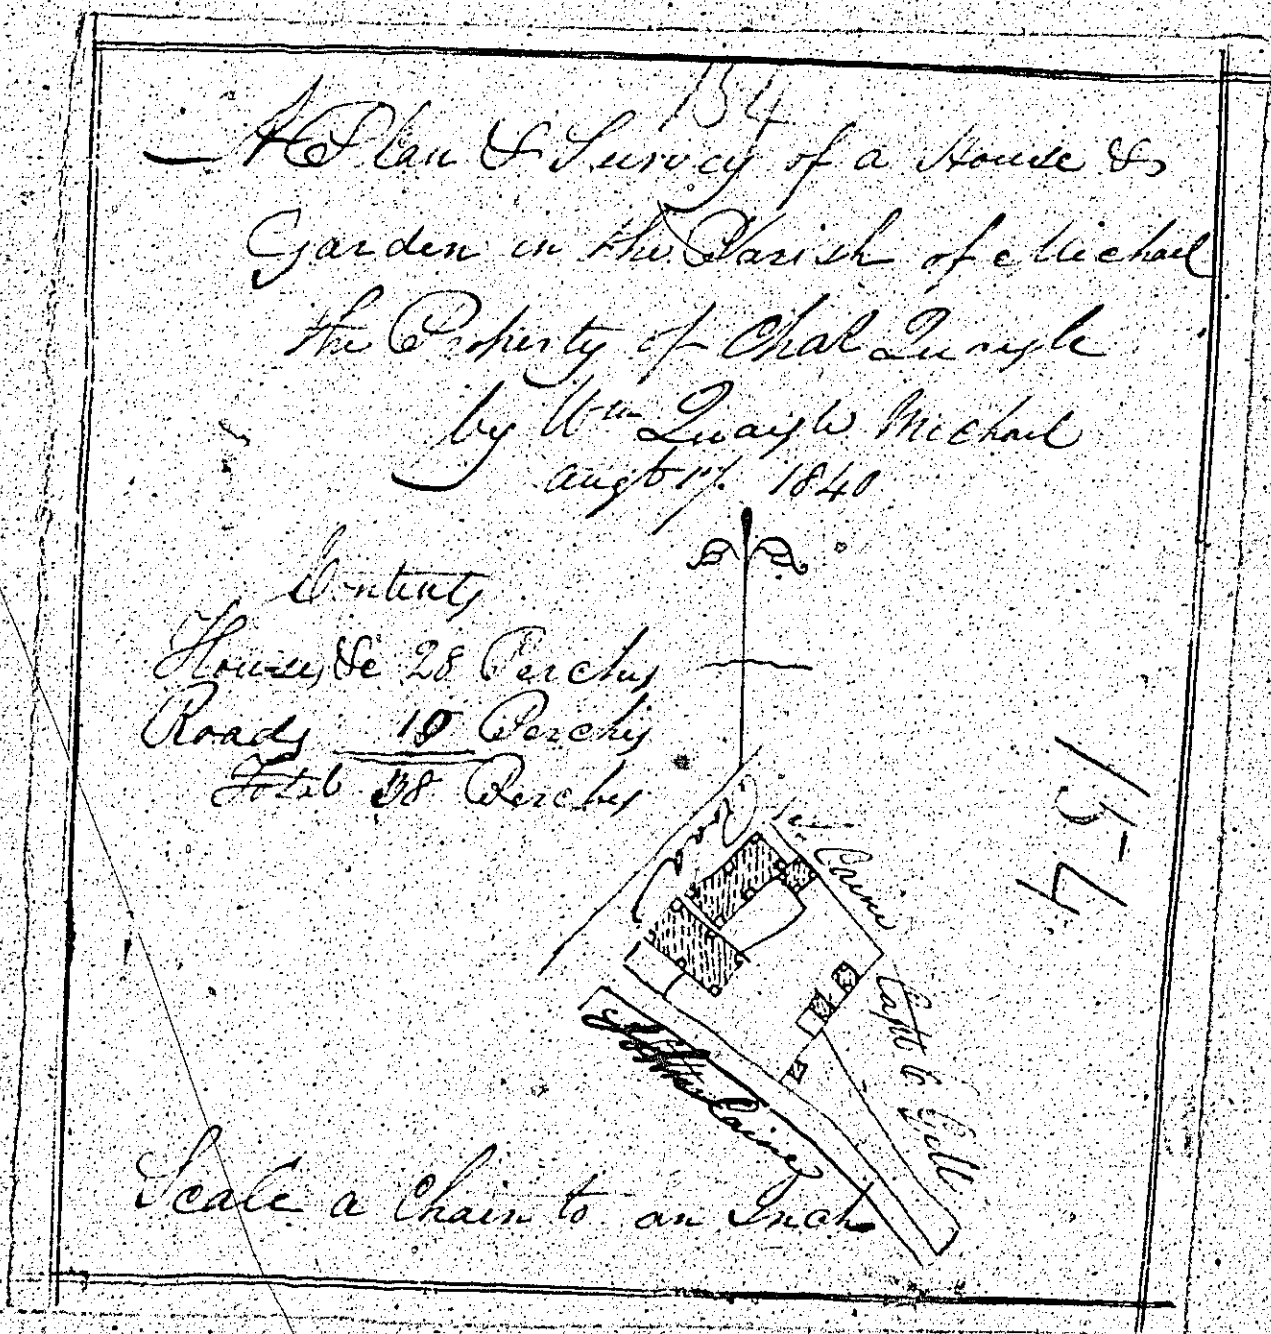 154
A Plan & Survey of a House &
Garden in the Parish of Michael
the Property of Chal Quaygle
by Wm Quaigle Michael
augt 17. 1840
Contents
Houses &c 28 Perches
Roads 10 Perches
Total 38 Perches
Road
Caine
Capt C Gill
Caine
154
Scale a Chain to an Inch